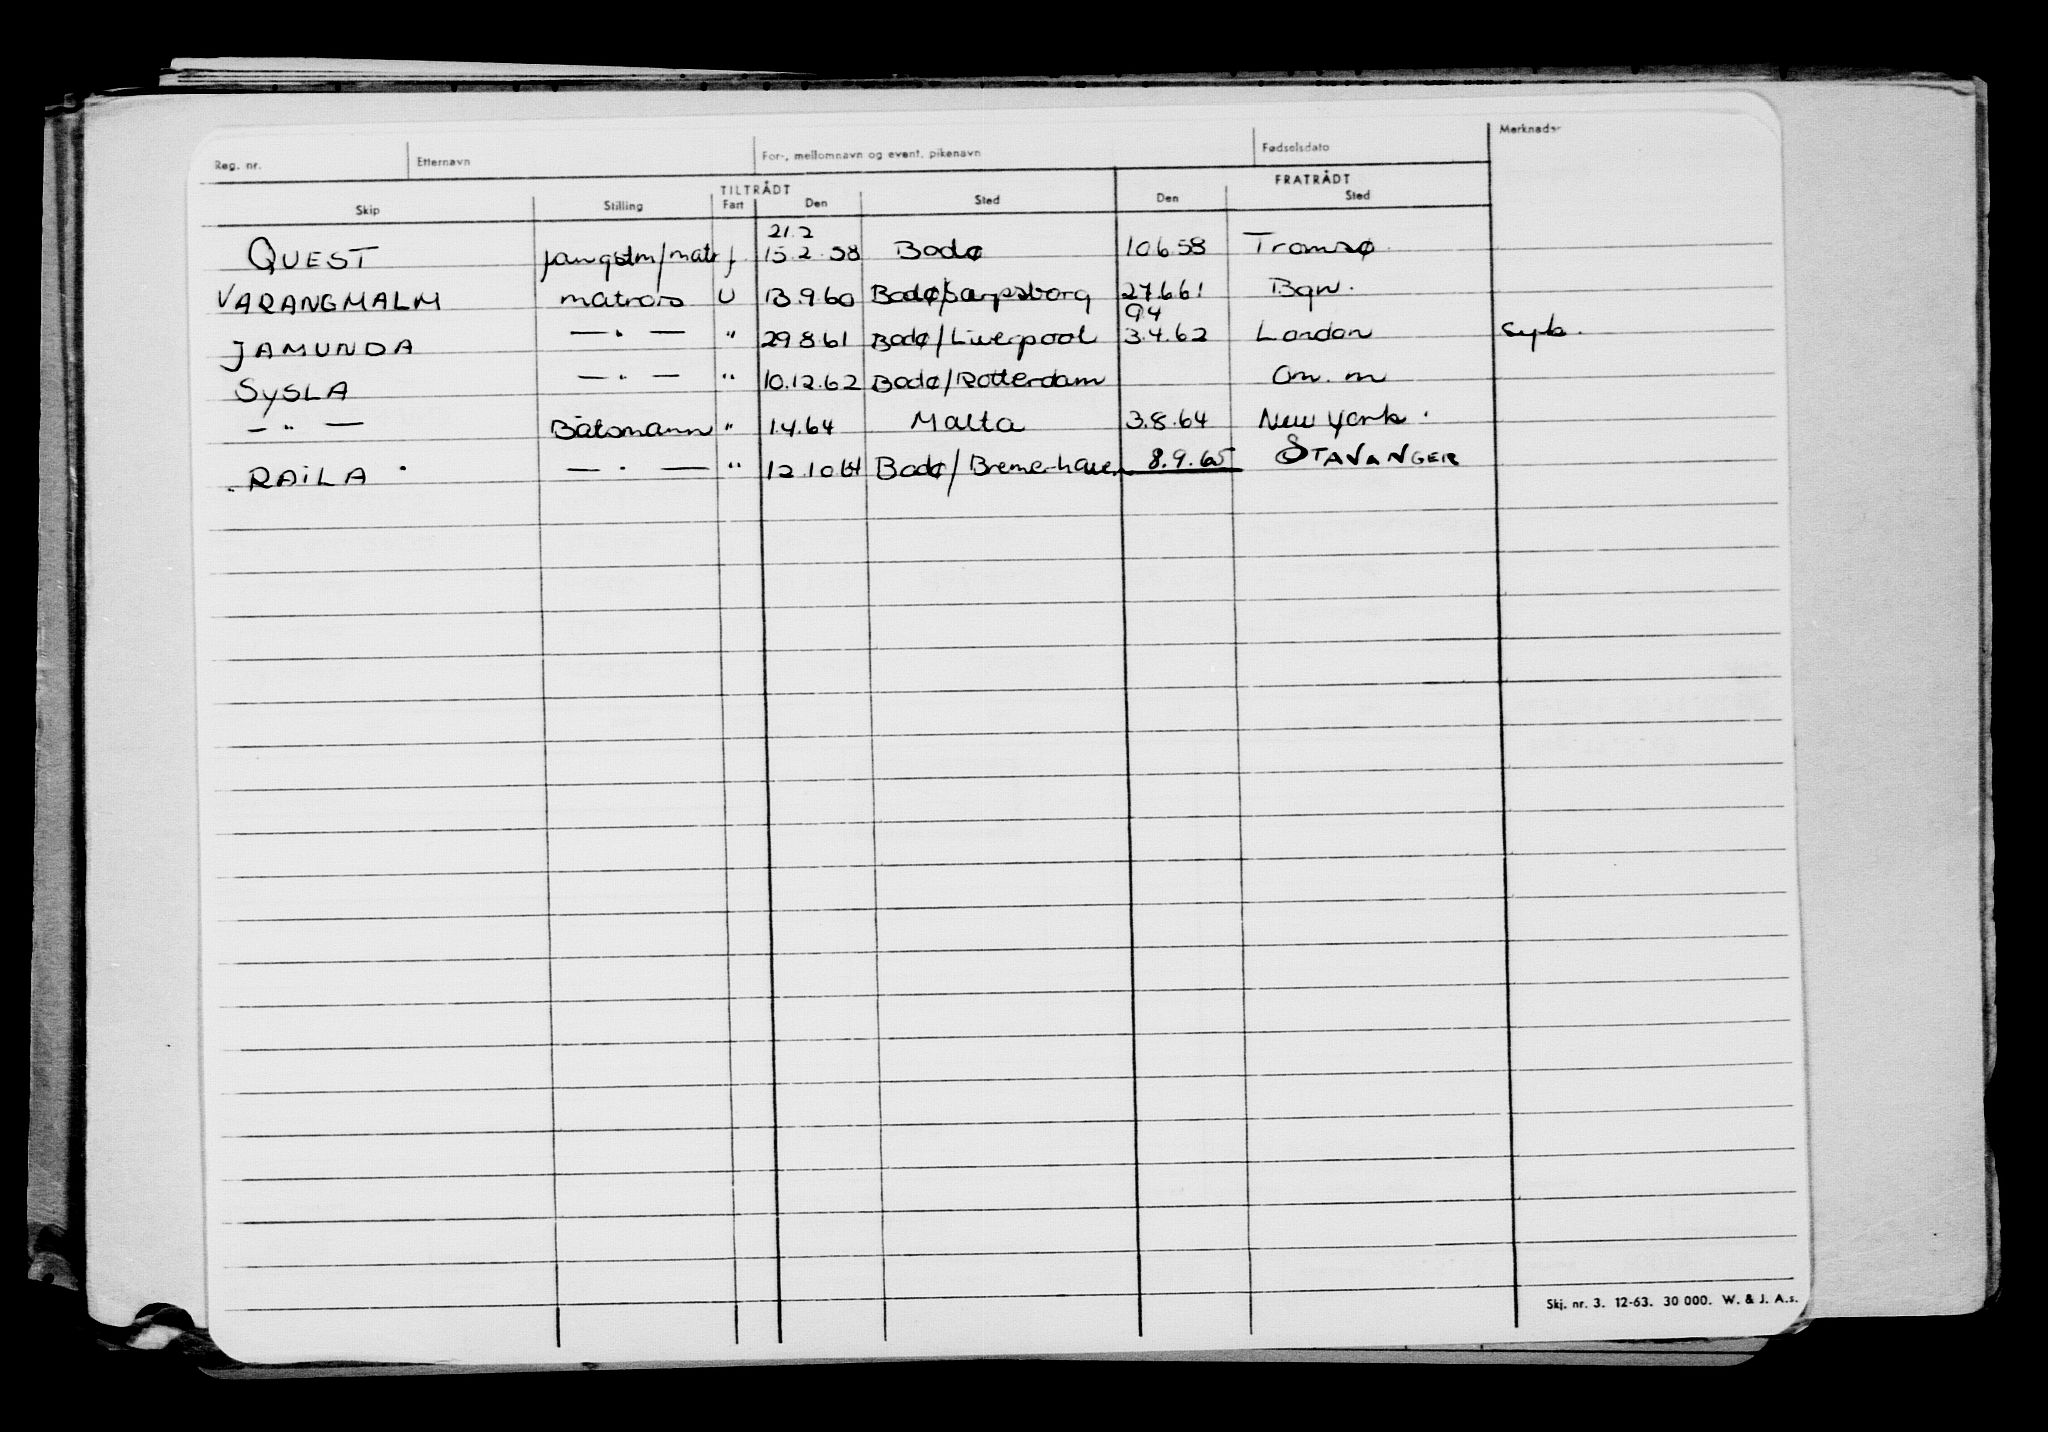 Reg. nr. Etternavn For-, mellomnavn og event. pikenavn Fødselsdato Merknader
TILTRÅDT FRATRÅDT
Skip Stilling Fart Den Sted Den Sted
21.2
QUEST fangstm/matr f 15.2.58 Bodø 10.6.58 Tromsø
VARANGMALM matros U 13.9.60 Bodø/Sarpsborg 27.6.61 Bgn.
9.4
JAMUNDA — " — " 29.8.61 Bodø/Liverpool 3.4.62 London Syk.
SYSLA — " — " 10.12.62 Bodø/Rotterdam Om. m
— " — Båtsmann " 1.4.64 Malta 3.8.64 New York.
RAILA — " — " 12.10.64 Bodø/Bremerhaven 8.9.65 STAVANGER
Skj. nr. 3. 12-63. 30 000. W. & J. A.s.